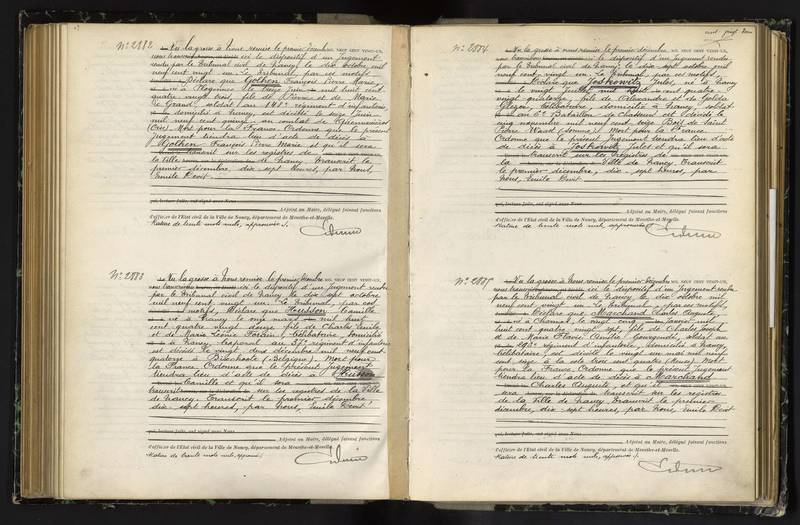 N° 2882
Vu la grosse à nous remise le premier décembre MIL NEUF CENT VINGT-UN,
nous transcrivons ici le dispositif d'un jugement
rendu par le Tribunal civil de Nancy le dix octobre mil
neuf cent vingt un. Le Tribunal, par ces motifs
Déclare que Gothen François Pierre Marie,
né à le seize Juin mil huit cent
quatre vingt trois, fils de Pierre et de Marie
Le Grand, soldat au 141e régiment d'infanterie
domicilié à Nancy, est décédé le seize Juin
mil neuf cent quinze au combat de
(Oise) Mort pour la France. Ordonne que le présent
jugement tiendra lieu d'acte de décès à
Gothen François Pierre Marie et qu'il sera
transcrit sur les registres de
la Ville de Nancy. Transcrit le
premier décembre, dix sept heures, par Nous,
Emile Devit
qui, lecture faite, ont signé avec Nous
Adjoint au Maire, délégué faisant fonctions
d'officier de l'Etat civil de la Ville de Nancy, département de Meurthe-et-Moselle.
Rature de trente mots nuls, approuvée ./.
N° 2883
Vu la grosse à Nous remise le premier décembre MIL NEUF CENT VINGT-UN,
nous transcrivons ici le dispositif d'un jugement rendu
par le Tribunal civil de Nancy le dix sept octobre
mil neuf cent vingt un. Le Tribunal, par ces
motifs, Déclare que Husson Camille
né à Nancy le onze mars mil huit
cent quatre vingt douze, fils de Charles Emile
et de Marie Louise Fortin, célibataire, domicilié
à Nancy, caporal au 37e régiment d'infanterie
est décédé le vingt deux décembre mil neuf cent
quatorze à Bixschoote (Belgique). Mort pour
la France. Ordonne que le présent jugement
tiendra lieu d'acte de décès à Husson
Camille et qu'il sera
transcrit sur les registres de la Ville
de Nancy. Transcrit le premier décembre,
dix sept heures, par Nous, Emile Devit
qui, lecture faite, ont signé avec Nous
Adjoint au Maire, délégué faisant fonctions
d'officier de l'Etat civil de la Ville de Nancy, département de Meurthe-et-Moselle.
Rature de trente mots nuls, approuvée ./.
N° 2884
Vu la grosse à nous remise le premier décembre MIL NEUF CENT VINGT-UN,
nous transcrivons ici le dispositif d'un jugement rendu
par le Tribunal civil de Nancy, le dix sept octobre mil
neuf cent vingt un. Le Tribunal, par ces motifs
Déclare que Joskowitz Jules, né à Nancy
le vingt Juillet mil huit cent quatre
vingt quatorze, fils de Alexandre et de Golda
célibataire, domicilié à Nancy, soldat
au 6e Bataillon de Chasseurs est décédé le
cinq novembre mil neuf cent seize Bois de Saint
Pierre Waast (Somme). Mort pour la France.
Ordonne que le présent jugement tiendra lieu d'acte
de décès à Joskowitz Jules et qu'il sera
transcrit sur les registres de
la Ville de Nancy. Transcrit
le premier décembre, dix sept heures, par
Nous, Emile Devit
qui, lecture faite, ont signé avec Nous
Adjoint au Maire, délégué faisant fonctions
d'officier de l'Etat civil de la Ville de Nancy, département de Meurthe-et-Moselle.
Rature de trente mots nuls, approuvée ./.
N° 2885
Vu la grosse à Nous remise le premier décembre MIL NEUF CENT VINGT-UN,
nous transcrivons ici le dispositif d'un jugement rendu
par le Tribunal civil de Nancy le dix octobre mil
neuf cent vingt un. Le Tribunal, par ces motifs,
Déclare que Marchand Charles Auguste,
né à le vingt cinq Janvier mil
huit cent quatre vingt sept, fils de Charles Joseph
et de Marie Flavie Amélie soldat au
régiment d'infanterie, domicilié à Nancy,
célibataire, est décédé le vingt un mai mil neuf
cent seize à la cote trois cent quatre (Meuse). Mort
pour la France. Ordonne que le présent jugement
tiendra lieu d'acte de décès à Marchand
Charles Auguste, et qu'il
sera transcrit sur les registres
de la Ville de Nancy. Transcrit le premier
décembre, dix sept heures, par Nous, Emile Devit
qui, lecture faite, ont signé avec Nous
Adjoint au Maire, délégué faisant fonctions
d'officier de l'Etat civil de la Ville de Nancy, département de Meurthe-et-Moselle.
Rature de trente mots nuls, approuvée ./.